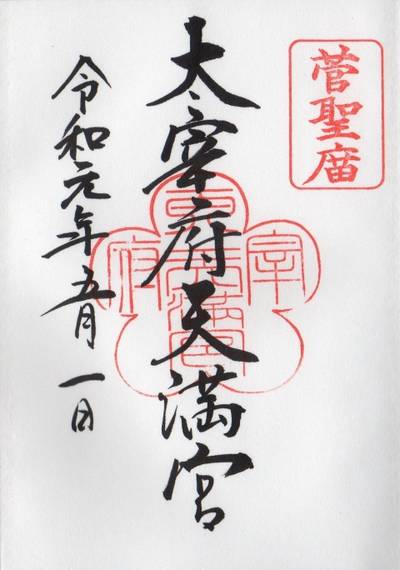 菅聖庿
太宰府天満宮
令和元年五月一日